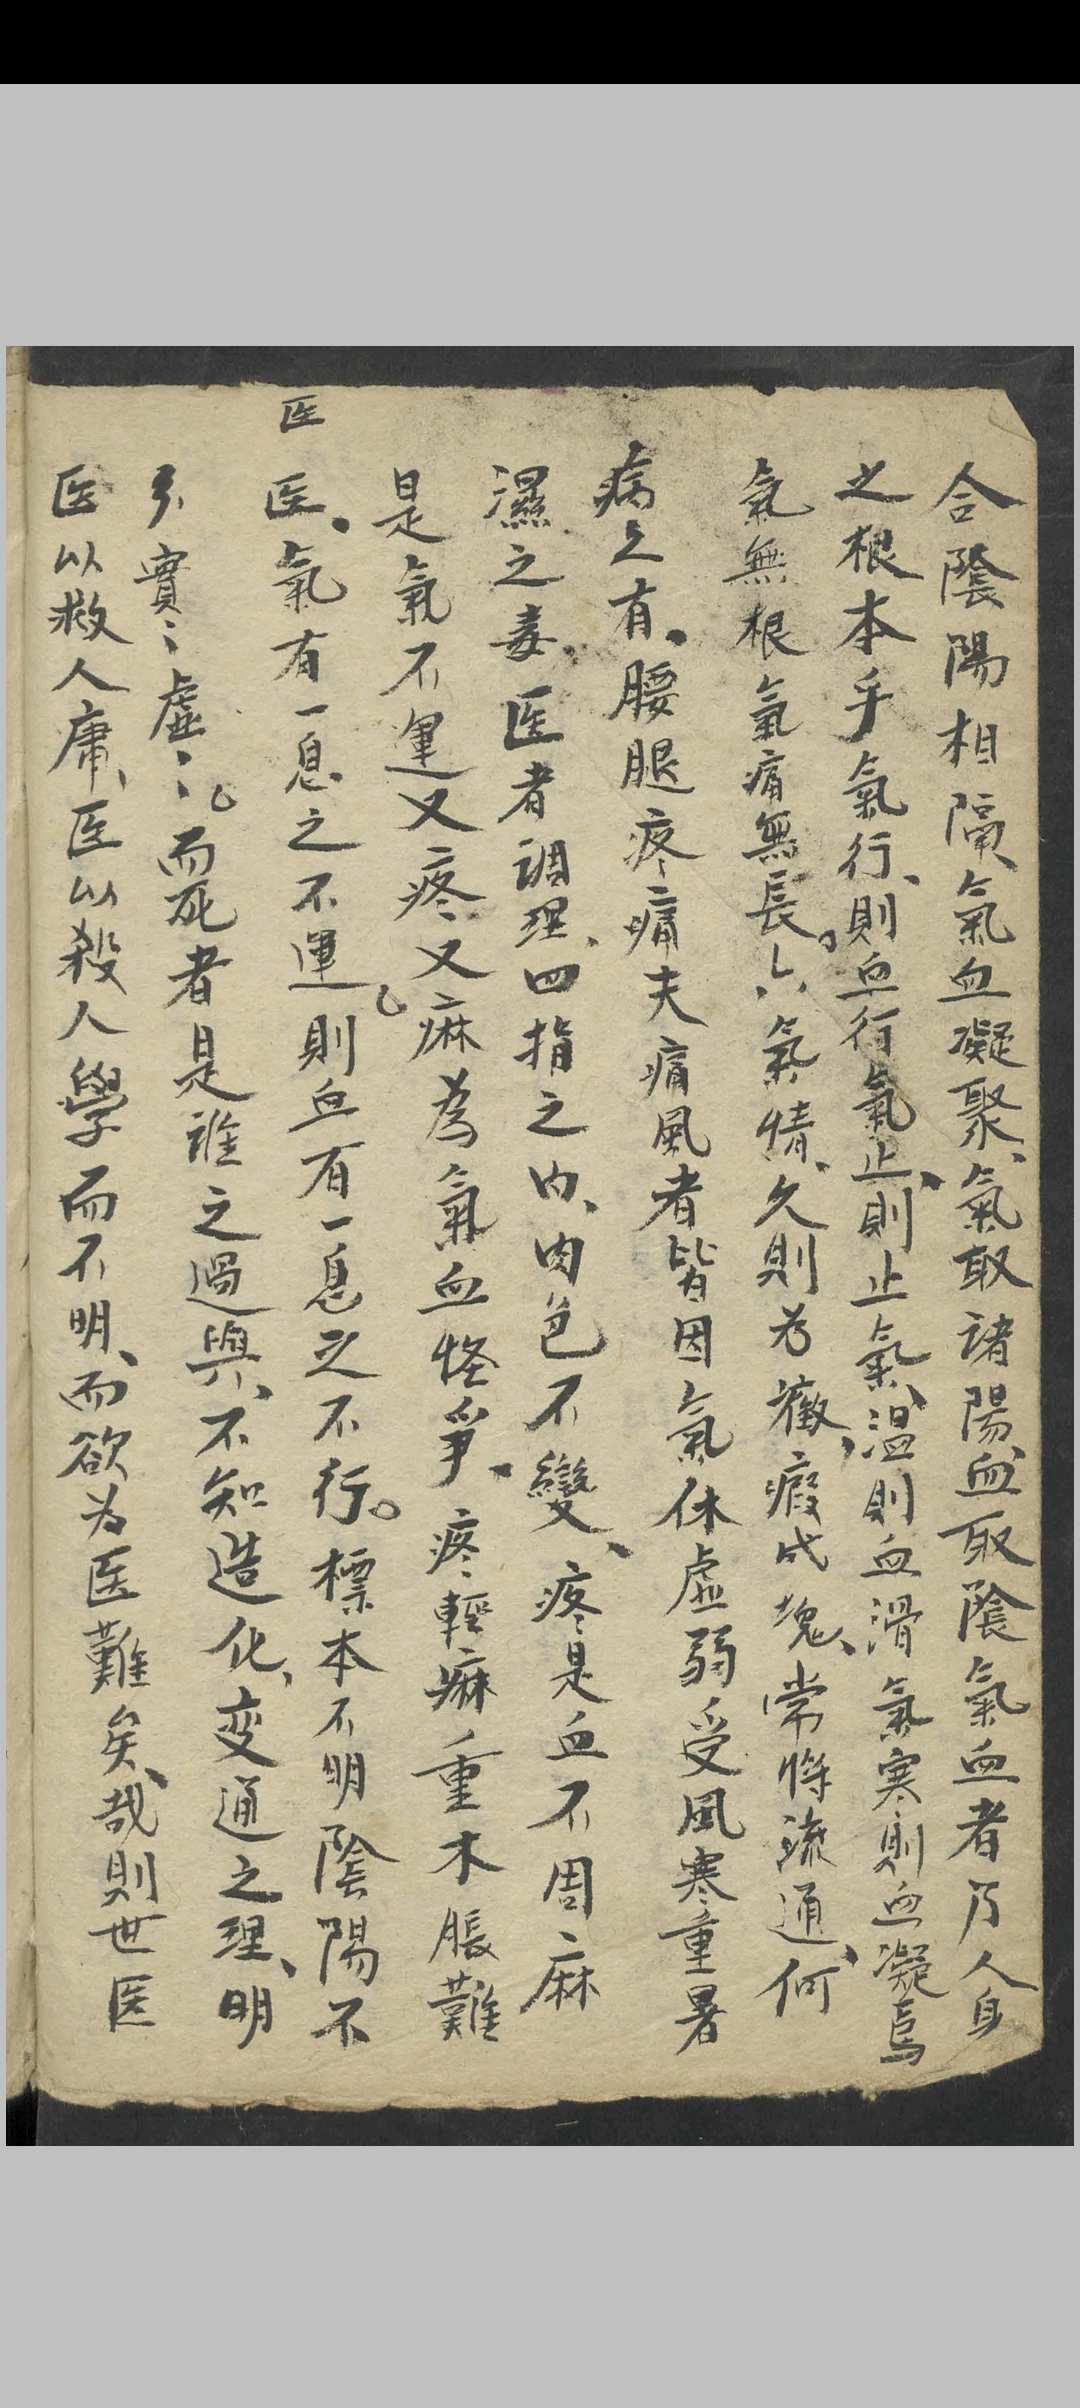 合陰陽相隔、氣血凝聚、氣取諸陽、血取陰氣血者乃人身
之根本乎氣行、則血行氣止、則止氣、温則血滑氣寒則血凝焉
氣無根氣痛無長。六氣情、久則为癥、瘕成塊、常将流通、何
病之有、腰腿疼痛夫痛風者皆因氣休虛弱受風寒重暑
濕之毒、医者調理、四指之内、肉色不變、疼是血不周麻
是氣不運又疼又麻為氣血怪爭、疼輕麻重木脹難
医
医、氣有一息之不運則血有一息之不行。標本不明陰陽不
分實〻虛〻而死者是誰之過與、不知造化、变通之理、明
医以救人庸、医以殺人學而不明、而欲为医難矣、哉則世医